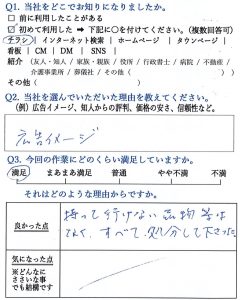 Q1. 当社をどこでお知りになりましたか。
□ 前に利用したことがある
☑ 初めて利用した → 下記に○を付けてください。(複数回答可)
チラシ | インターネット検索 | ホームページ | タウンページ |
看板 | CM | DM | SNS |
紹介 (友人・知人 / 家族・親族 / 役所 / 行政書士 / 病院 / 不動産 /
介護事業所 / 葬儀社 / その他( ))
その他( )
Q2. 当社を選んでいただいた理由を教えてください。
(例)広告イメージ、知人からの評判、価格の安さ、信頼性など。
広告イメージ
Q3. 今回の作業にどのくらい満足していますか。
満足 まあまあ満足 普通 やや不満 不満
それはどのような理由からですか。
良かった点
持って行けない品物等は
なく、すべて処分して下さった
気になった点
※どんなに
ささいな事
でも結構です